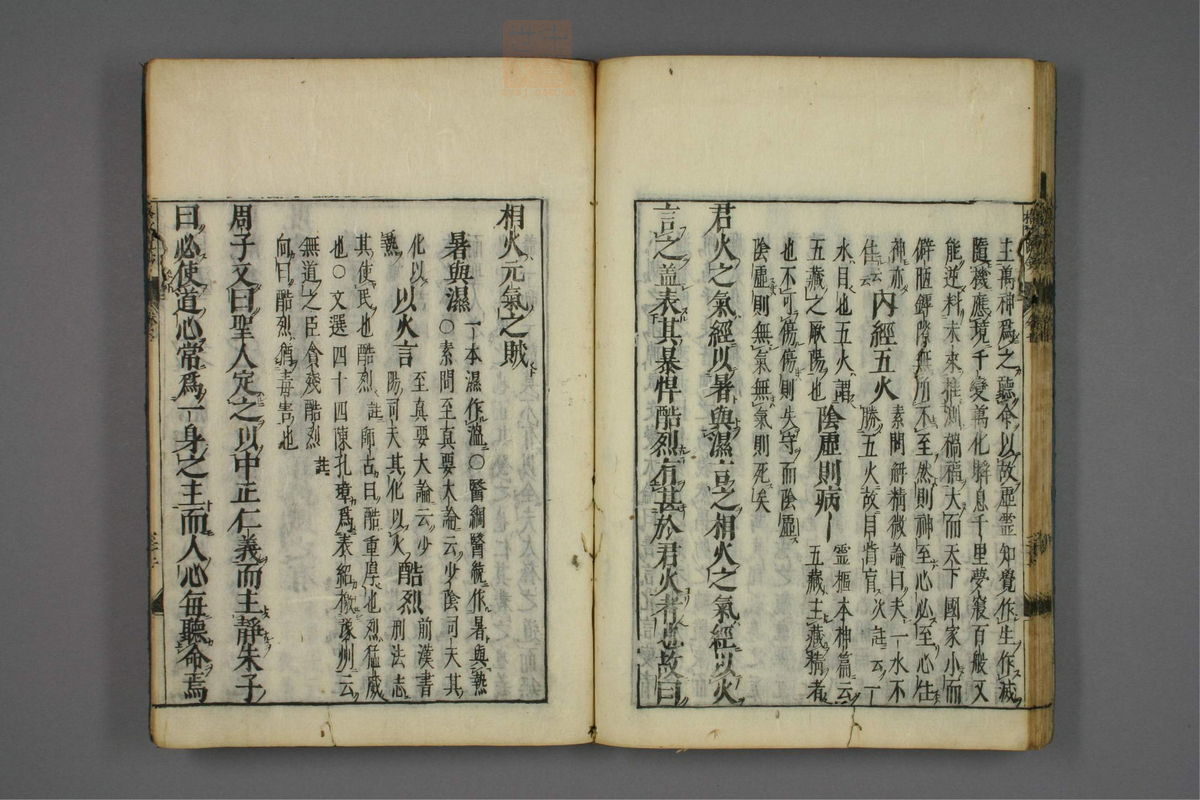 主萬神爲之聽命以故虛霊知覺作生作滅
隨機應境千變萬化瞬息千里夢寢百般又
能逆料未來推測禍福大而天下國家小而
僻陋罅隙無所不至然則神至心必至心住
神亦住云 内經五火 素問解精微論曰夫一水不勝五火故目眥盲次註云一
水目也五火謂五藏之厥陽也 陰虛則病 霊樞本神篇云五藏主藏精者
也不可傷傷則失守而陰虛
陰虛則無氣無氣則死矣
君火之氣經以暑與濕言之相火之氣經以火
言之蓋表其暴悍酷烈有甚於君火者也故曰
相火元氣之賊
暑與濕 一本濕作溫○醫綱醫統作暑與熱○素問至真要大論云少陰司天其
化以熱 以火言 至真要大論云少陽司天其化以火 酷烈 前漢書刑法志
其使民也酷烈 註師古曰酷重厚也烈猛威
也○文選四十四陳孔璋爲表紹檄豫州云
無道之臣貪殘酷烈 註
向曰酷烈猶毒害也
周子又曰聖人定之以中正仁義而主靜朱子
曰必使道心常爲一身之主而人心每聽命焉